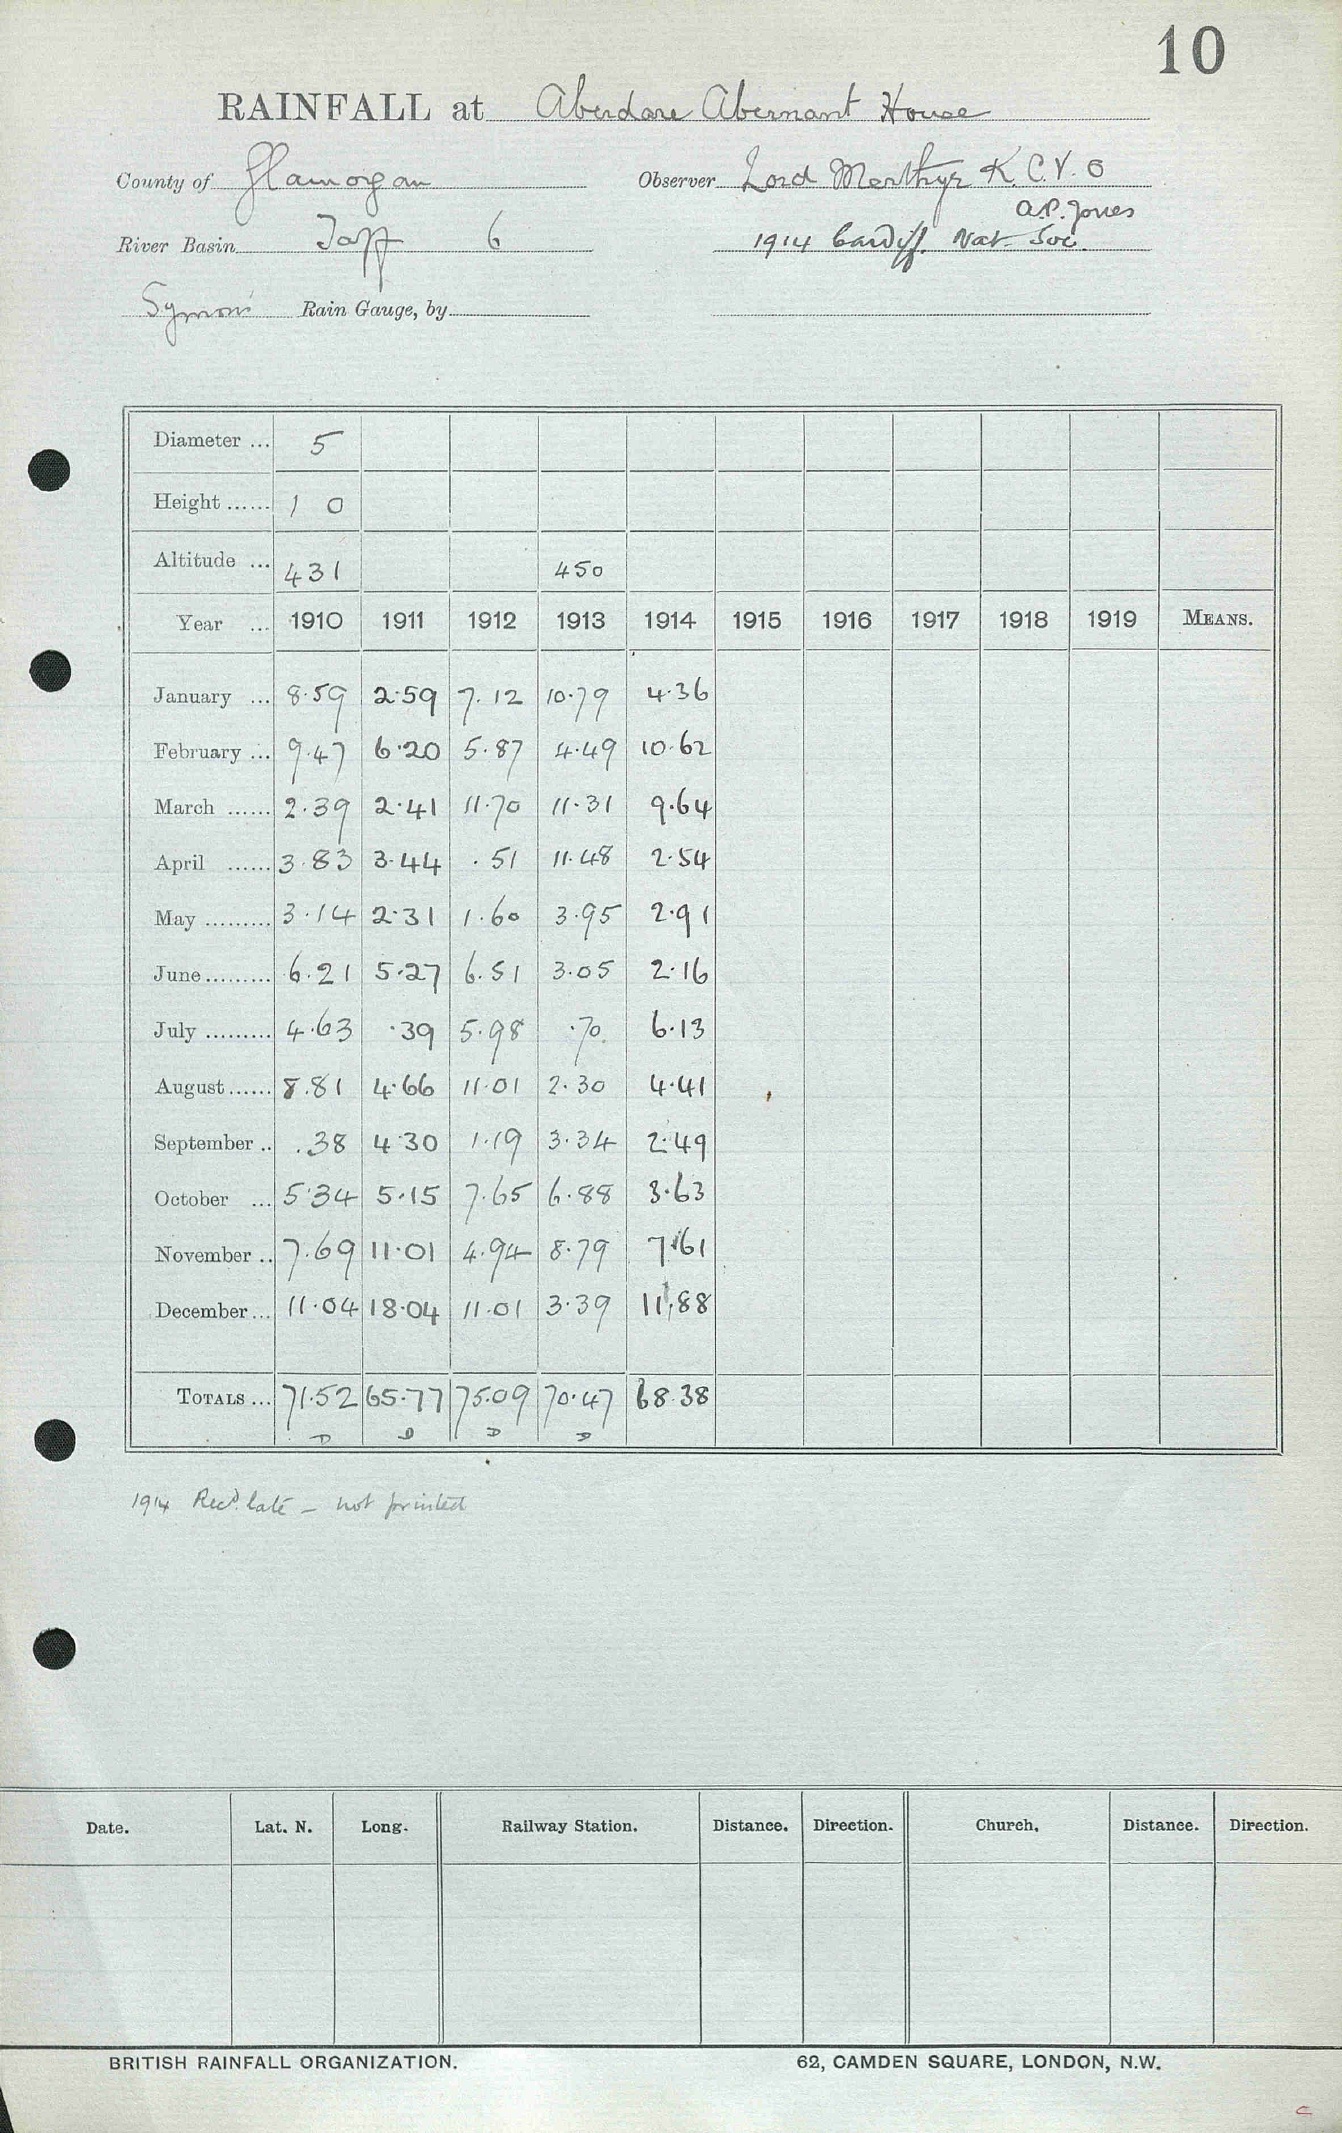 10
RAINFALL at Aberdare Abernant House
County of Glamorgan Observer Lord Merthyr K.C.V.O
A.P. Jones
River Basin Taff 6 1914 Cardiff Nat Soc.
Symons Rain Gauge, by
Diameter ... 5
Height ...... 1 0
Altitude ... 431 450
Year ... 1910 1911 1912 1913 1914 1915 1916 1917 1918 1919 MEANS.
January ... 8.59 2.59 7.12 10.79 4.36
February ... 9.47 6.20 5.87 4.49 10.62
March ...... 2.39 2.41 11.70 11.31 9.64
April ...... 3.83 3.44 .51 11.48 2.54
May ......... 3.14 2.31 1.60 3.95 2.91
June ......... 6.21 5.27 6.51 3.05 2.16
July ......... 4.63 .39 5.98 .70 6.13
August ...... 8.81 4.66 11.01 2.30 4.41
September .. .38 4.30 1.19 3.34 2.49
October ... 5.34 5.15 7.65 6.88 3.63
November .. 7.69 11.01 4.94 8.79 7.61
December ... 11.04 18.04 11.01 3.39 11.88
TOTALS ... 71.52 65.77 75.09 70.47 68.38
1914 Recd. late - not printed
Date. Lat. N. Long. Railway Station. Distance. Direction. Church. Distance. Direction.
BRITISH RAINFALL ORGANIZATION. 62, CAMDEN SQUARE, LONDON, N.W.